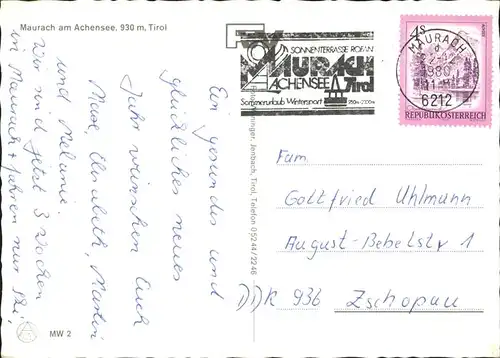 Maurach am Achensee, 930 m, Tirol
SONNENTERRASSE ROFAN
MAURACH
ACHENSEE Tirol
Sommerurlaub Wintersport
MAURACH
1980
6212
REPUBLIK ÖSTERREICH
Ein gesundes und
glückliches neues
Jahr wünschen Euch
Maxe, Elisabeth, Martin
und Melanie.
Wir sind jetzt 3 Wochen
in Maurach fahren nur
Jenbach, Tirol, Telefon 05244/2246
Fam.
Gottfried Uhlmann
August-Bebelstr 1
DDR 936 Zschopau
MW 2